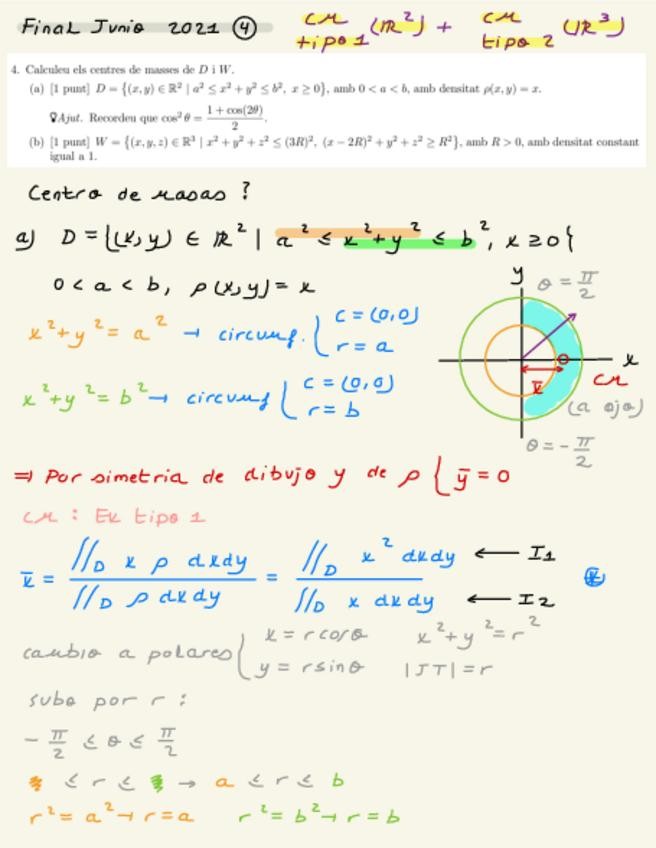 Final Junio 2021 ④ CM tipo 1 (IR²) + CM tipo 2 (IR³)
4. Calculeu els centres de masses de D i W.
(a) [1 punt] D = {(x, y) ∈ ℝ² | a² ≤ x² + y² ≤ b², x ≥ 0}, amb 0 < a < b, amb densitat ρ(x, y) = x.
Ajut. Recordeu que cos² θ = (1 + cos(2θ))/2.
(b) [1 punt] W = {(x, y, z) ∈ ℝ³ | x² + y² + z² ≤ (3R)², (x − 2R)² + y² + z² ≥ R²}, amb R > 0, amb densitat constant
igual a 1.
Centro de masas ?
a) D = {(x,y) ∈ IR² | a² ≤ x²+y² ≤ b², x ≥ 0}
0 < a < b, ρ(x,y) = x
y θ = π/2
x²+y² = a² → circunf. { c = (0,0) r = a
x
x̄ CM
(a ojo)
x²+y² = b² → circunf { c = (0,0) r = b
θ = -π/2
⇒ Por simetria de dibujo y de ρ { ȳ = 0
CM : Ex tipo 1
x̄ = ∫∫_D x ρ dxdy / ∫∫_D ρ dxdy = ∫∫_D x² dxdy ← I1 / ∫∫_D x dxdy ← I2 ⊛
cambio a polares { x = r cosθ y = r sinθ x²+y² = r² |JT| = r
subo por r :
-π/2 ≤ θ ≤ π/2
≤ r ≤ → a ≤ r ≤ b
r² = a² → r = a r² = b² → r = b